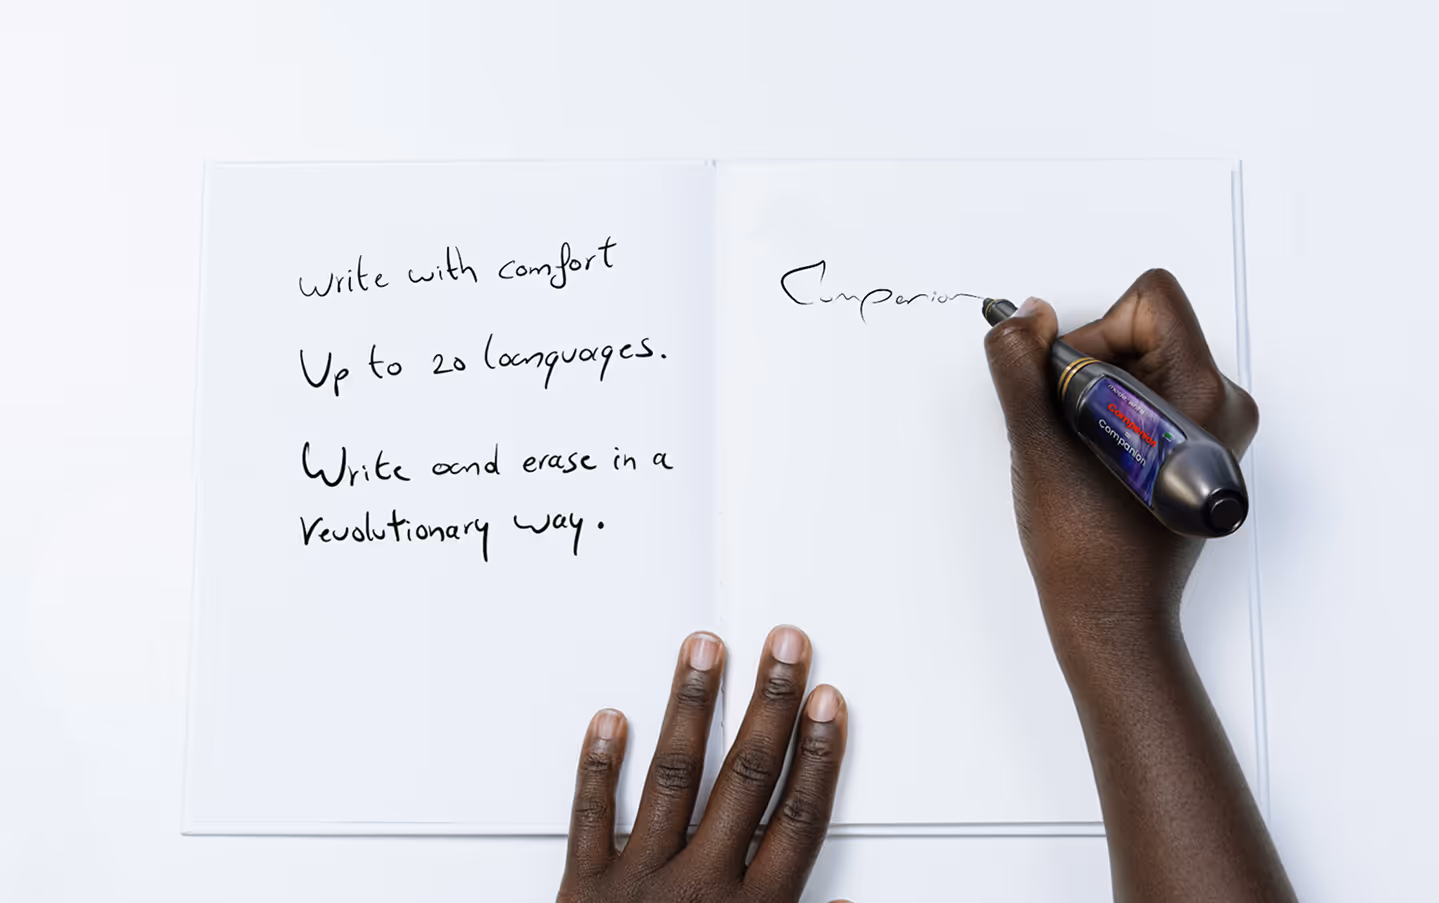 write with comfort
Up to 20 languages.
Write and erase in a
revolutionary way.
Companion
made with
Companion
Companion